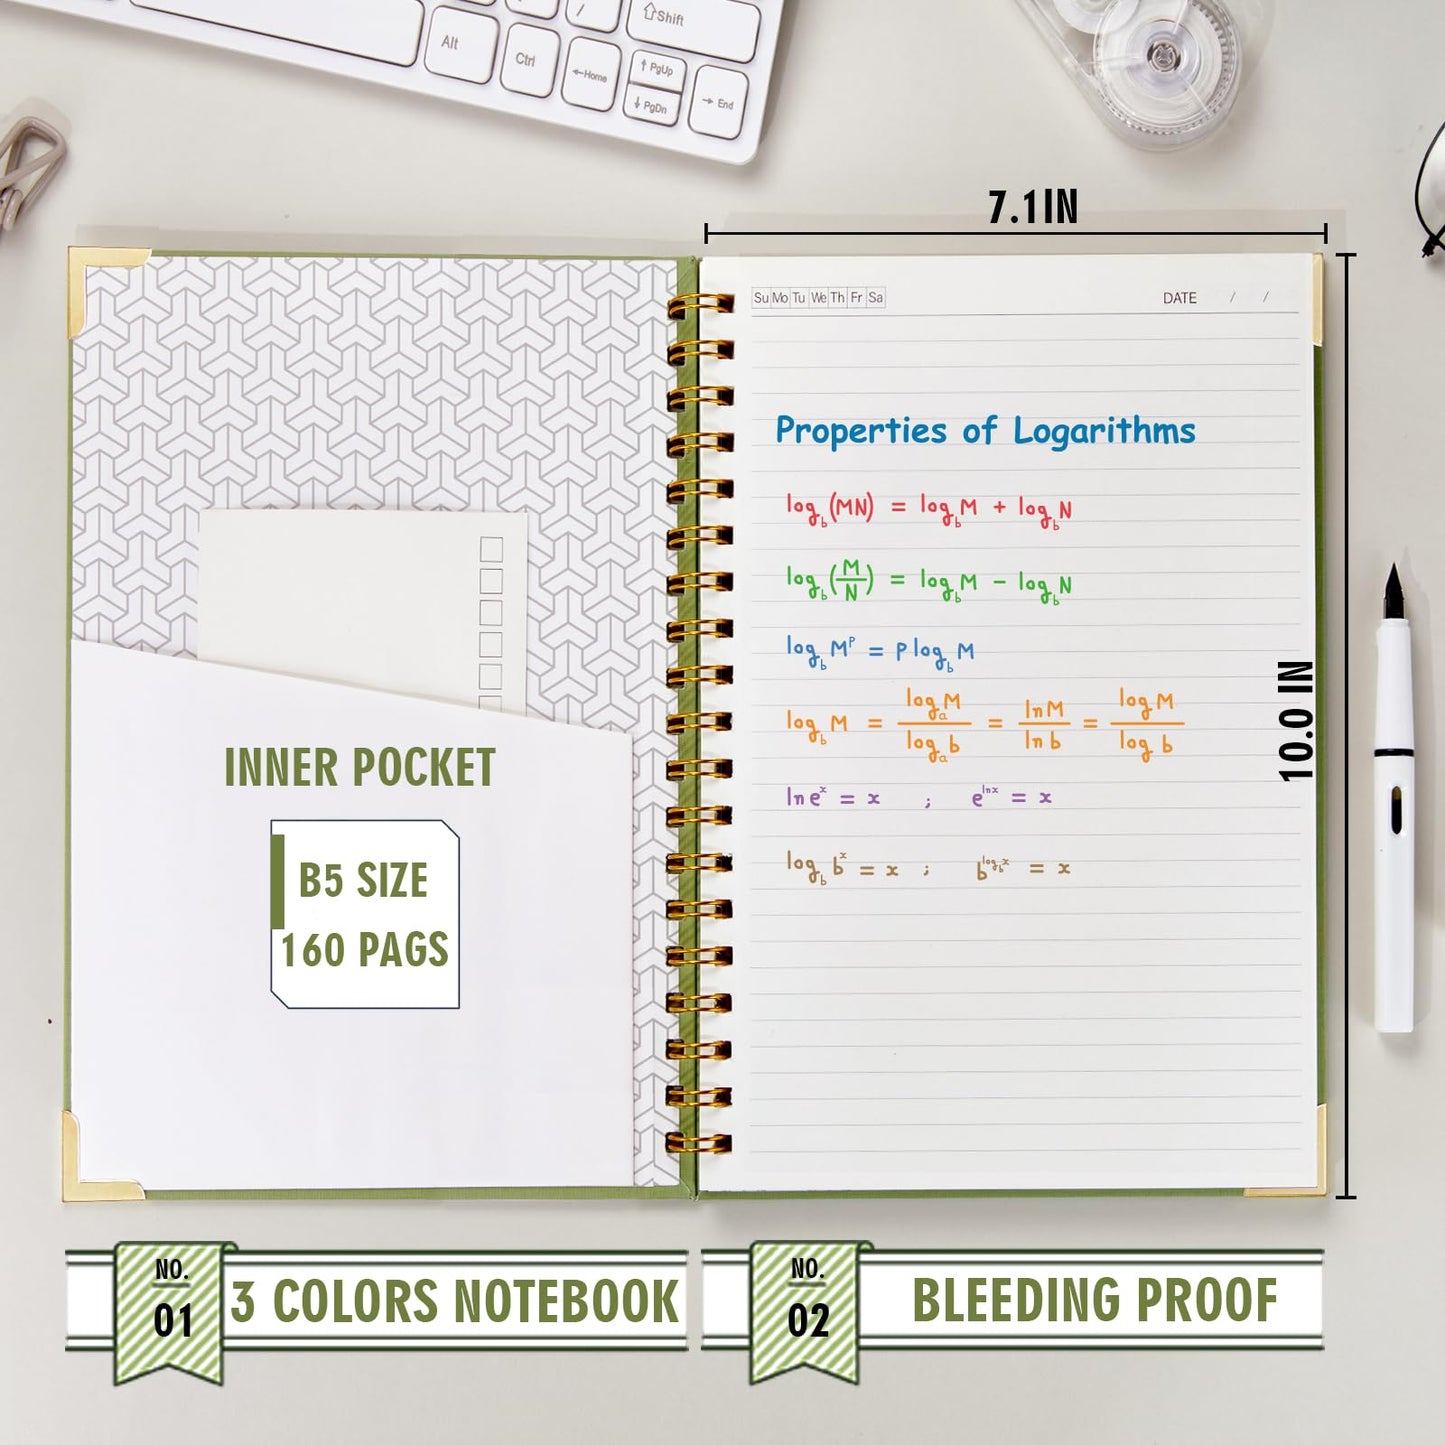 /
⇧Shift
Alt
Ctrl
←Home
↑ PgUp
↓ PgDn
→ End
7.1IN
Su Mo Tu We Th Fr Sa
DATE / /
Properties of Logarithms
log_b(MN) = log_b M + log_b N
log_b(M/N) = log_b M - log_b N
log_b M^P = P log_b M
log_b M = log_a M / log_a b = ln M / ln b = log M / log b
ln e^x = x ; e^ln x = x
log_b b^x = x ; b^log_b x = x
10.0 IN
INNER POCKET
B5 SIZE
160 PAGS
NO.
01
3 COLORS NOTEBOOK
NO.
02
BLEEDING PROOF